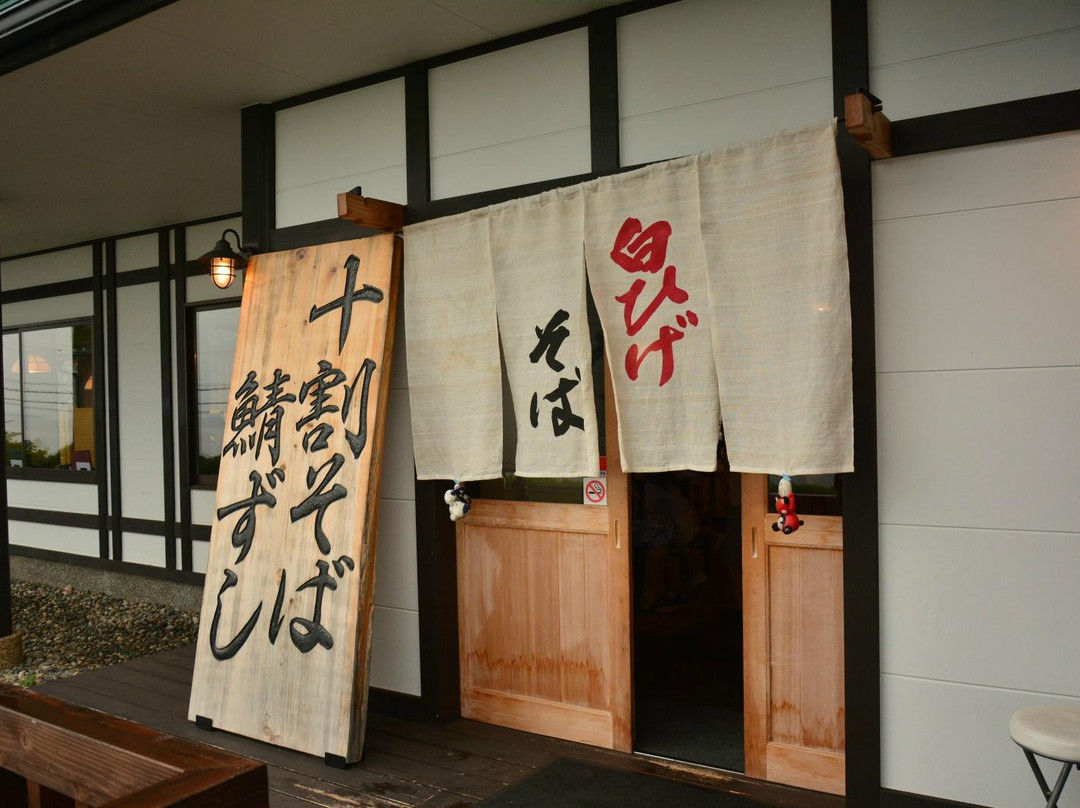 十割そば
鯖ずし
白ひげ
そば